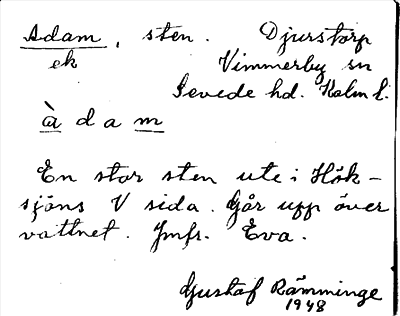 Adam, sten. Djurstorp
ek Vimmerby sn
Sevede hd. Kalm l.
à d a m
En stor sten ute i Hök-
sjöns V sida. Går upp över
vattnet. Jmfr. Eva.
Gustaf Rämminge
1948